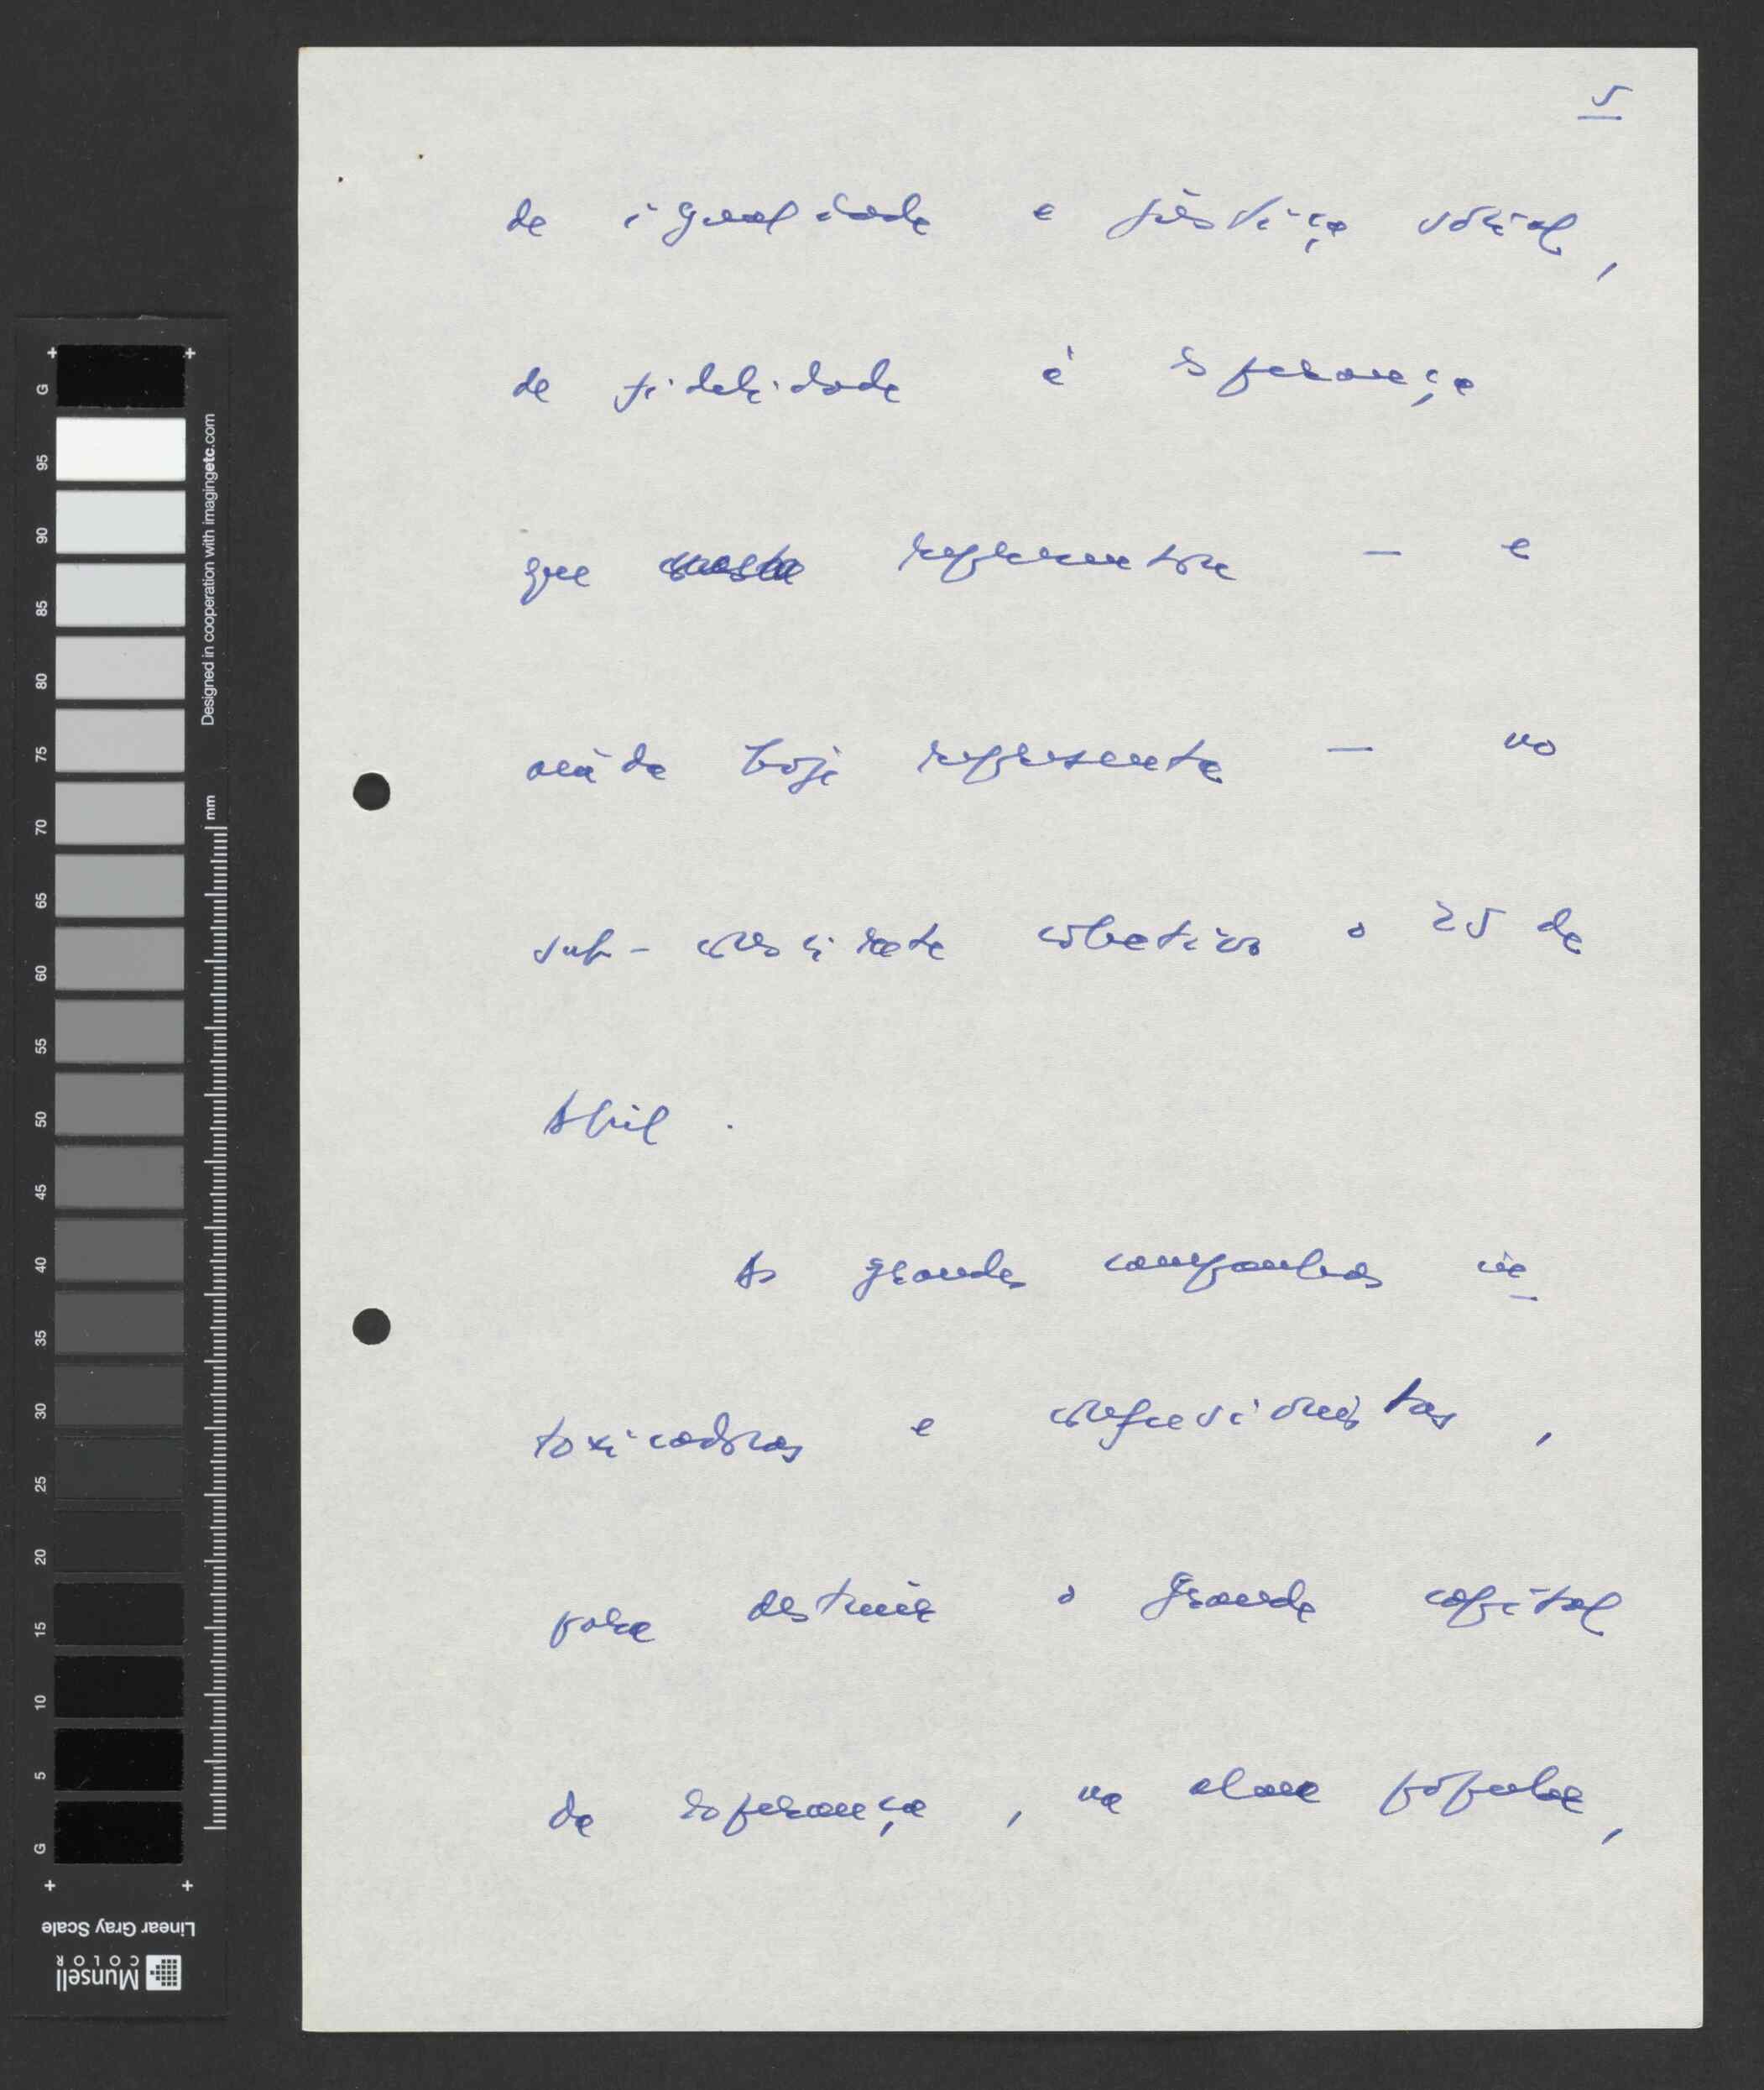 5
de igualdade e justiça social,
de fidelidade à esperança
que representou — e
ainda hoje representa — no
sub-consciente colectivo o 25 de
Abril.
As grandes campanhas in
toxicadoras e confusionistas,
para destruir o grande capital
da esperança, na alma popular,
G
95
90
85
80
75
70
65
60
55
50
45
40
35
30
25
20
15
10
5
G
Designed in cooperation with imagingetc.com
mm
Linear Gray Scale
Munsell
COLOR